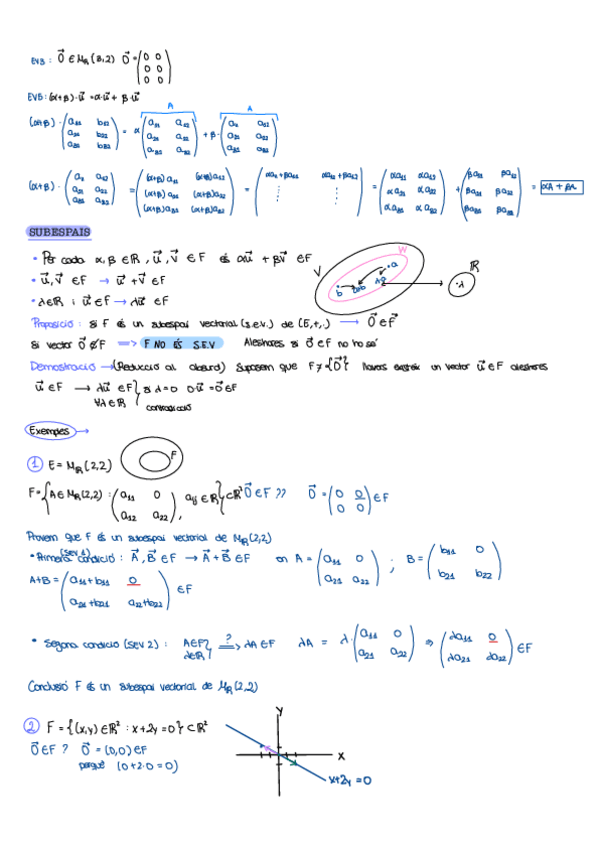 EV3: 0⃗ ∈ M_R(3,2) 0⃗ = (0 0; 0 0; 0 0)
EV6: (α+β)·u⃗ = α·u⃗ + β·u⃗
A A
(α+β)· = α + β·
(α+β)· = ((α+β)a₁₁ (α+β)a₁₂; (α+β)a₂₁ (α+β)a₂₂; (α+β)a₃₁ (α+β)a₃₂) = (αa₁₁+βa₁₁ αa₁₂+βa₁₂; ⋮ ⋮) = (αa₁₁ αa₁₂; αa₂₁ αa₂₂; αa₃₁ αa₃₂) + (βa₁₁ βa₁₂; βa₂₁ βa₂₂; βa₃₁ βa₃₂) = αA + βA
SUBESPAIS
• Per cada α, β ∈ R, u⃗, v⃗ ∈ F és αu⃗ + βv⃗ ∈ F
V W R a b λ
• u⃗, v⃗ ∈ F → u⃗ + v⃗ ∈ F
• λ ∈ R i u⃗ ∈ F → λu⃗ ∈ F
Proposició: si F és un subespai vectorial (s.e.v.) de (E,+,·) → 0⃗ ∈ F
Si vector 0⃗ ∉ F ⟹ F NO ÉS S.E.V Aleshores si 0⃗ ∈ F no ho sé
Demostració → (Reducció al absurd) Suposem que F ≠ {0⃗} un vector u⃗ ∈ F aleshores
u⃗ ∈ F → λu⃗ ∈ F } si λ=0 0·u⃗ = 0⃗ ∈ F
∀λ ∈ R contradicció
Exemples →
① E = M_R(2,2) F
F = {A ∈ M_R(2,2) : (a₁₁ 0; a₁₂ a₂₂), aij ∈ R} ⊂ R² 0⃗ ∈ F ?? 0⃗ = (0 0; 0 0) ∈ F
Provem que F és un subespai vectorial de M_R(2,2)
• Primera condició (sev 1): A⃗, B⃗ ∈ F → A⃗ + B⃗ ∈ F on A = (a₁₁ 0; a₂₁ a₂₂) ; B = (b₁₁ 0; b₂₁ b₂₂)
A+B = (a₁₁+b₁₁ 0; a₂₁+b₂₁ a₂₂+b₂₂) ∈ F
• Segona condició (sev 2): A∈F λ∈R } ?⟹ λA ∈ F λA = λ·(a₁₁ 0; a₂₁ a₂₂) ⇒ (λa₁₁ 0; λa₂₁ λa₂₂) ∈ F
Conclusió F és un subespai vectorial de M_R(2,2)
② F = {(x,y) ∈ R² : x+2y=0} ⊂ R²
0⃗ ∈ F ? 0⃗ = (0,0) ∈ F
perquè (0+2·0=0)
y
x
x+2y=0